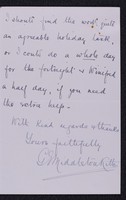 I should find the work quite
an agreable holiday task,
or I could do a whole day
for the fortnight & Winifred
a half day, if you need
the extra help.
With kind regards & thanks
Yours faithfully